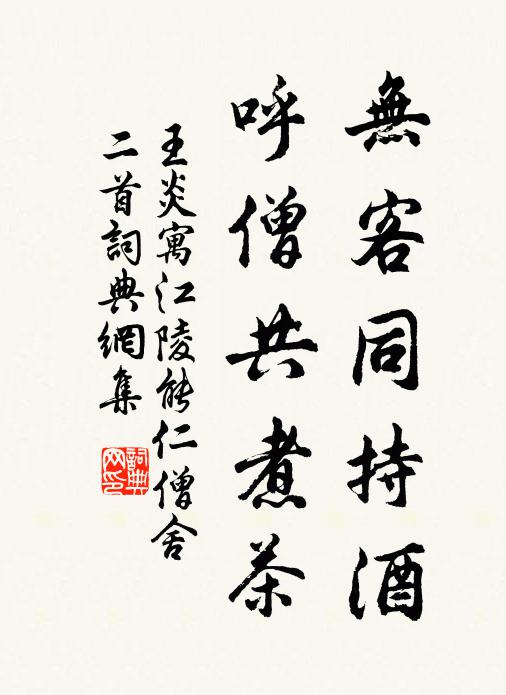 無客同持酒
呼僧共煮茶
王炎寓江陵能仁僧舍
二首詞典網集
詞典
网印